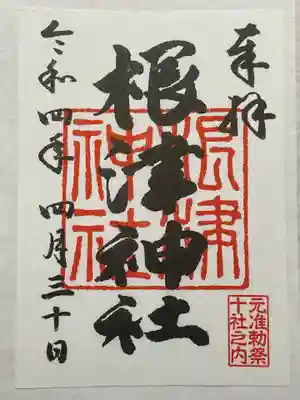 奉拝
根津神社
令和四年 四月三十日
根津神社
元准勅祭
十社之内